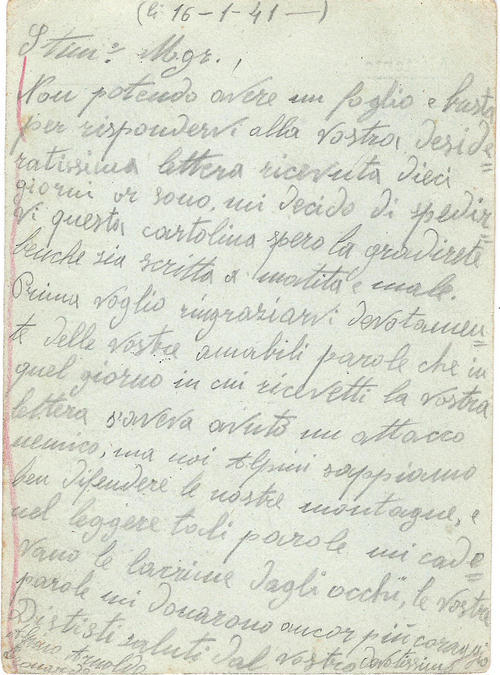 (li 16-1-41-)
Stim.o Mgr.,
Non potendo avere un foglio e busta
per rispondervi alla vostra deside=
ratissima lettera ricevuta dieci
giorni or sono, mi decido di spedir=
vi questa cartolina spero la gradirete
benche sia scritta a matita e male.
Prima voglio ringraziarvi devotamen=
te delle vostre amabili parole che in
quel giorno in cui ricevetti la vostra
lettera s'aveva avuto un attacco
nemico; ma noi Alpini sappiamo
ben difendere le nostre montagne, e
nel leggere tali parole mi cade=
vano le lacrime dagli occhi, le vostre
parole mi donarono ancor più coraggio
Dististi saluti dal vostro devotissimo
Alpino Arnoldo
Leonardo